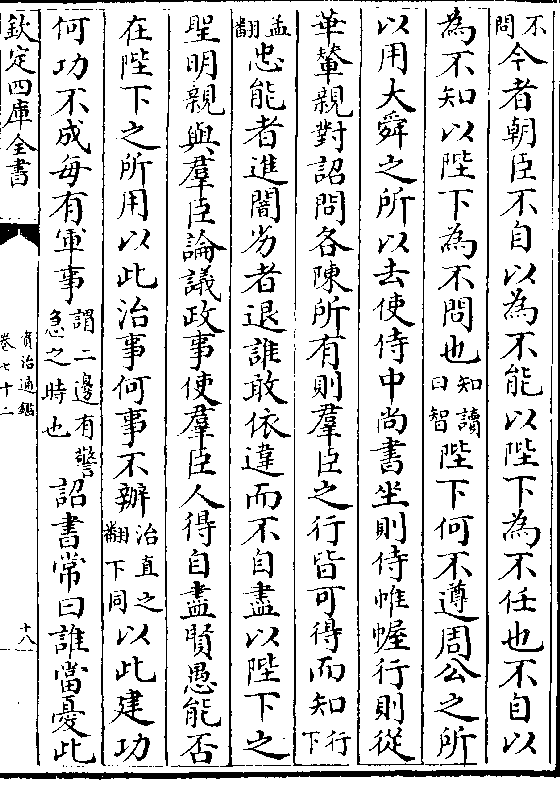 不問今者朝臣不自以為不能以陛下為不任也不自以
為不知以陛下為不問也知讀曰智陛下何不遵周公之所
以用大舜之所以去使侍中尚書坐則侍帷幄行則從
華輦親對詔問各陳所有則羣臣之行皆可得而知行下
孟翻忠能者進闇劣者退誰敢依違而不自盡以陛下之
聖明親與羣臣論議政事使羣臣人得自盡賢愚能否
在陛下之所用以此治事何事不辦治直之翻下同以此建功
何功不成每有軍事謂二邊有警急之時也詔書常曰誰當憂此
欽定四庫全書
資治通鑑
卷七十二
十八